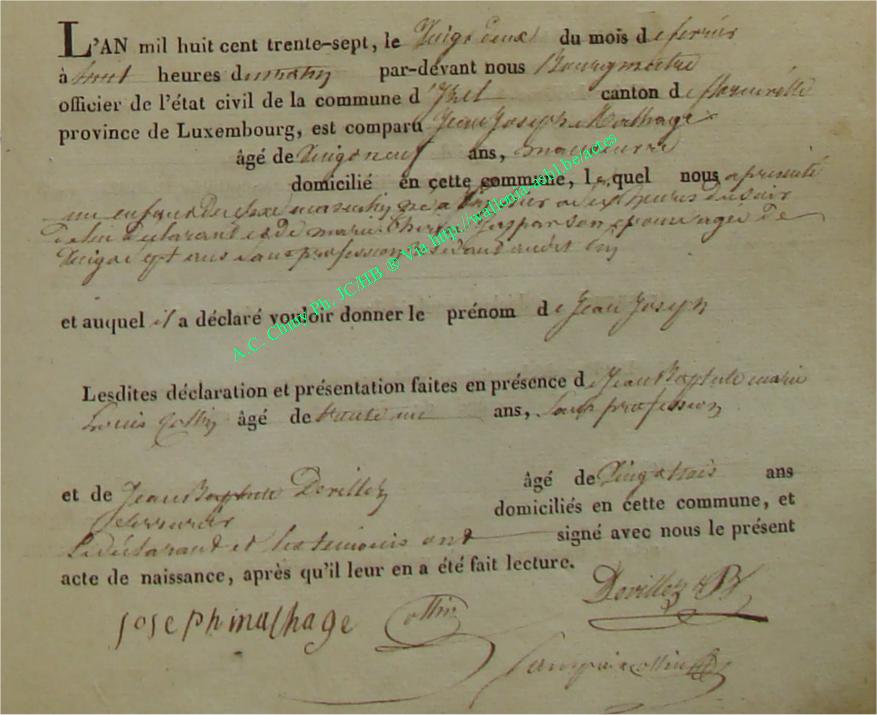 L'AN mil huit cent trente-sept, le vingt deux du mois de fevrier
à huit heures du matin par-devant nous Bourgmestre
officier de l'état civil de la commune d'Izel canton de florenville
province de Luxembourg, est comparu Jean Joseph Mathage
âgé de vingt neuf ans,
domicilié en cette commune, lequel nous a présenté
un enfant du sexe masculin né a dix heures du soir
de lui déclarant et de marie son epouse agée de
vingt sept ans sans profession
et auquel il a déclaré vouloir donner le prénom de Jean Joseph
Lesdites déclaration et présentation faites en présence de Jean Baptiste marie
Louis Collin âgé de trente un ans, sans profession
et de Jean Baptiste Devillez âgé de vingt trois ans
serrurier domiciliés en cette commune, et
le déclarant et les temoins ont signé avec nous le présent
acte de naissance, après qu'il leur en a été fait lecture.
Devillez JB
joseph mathage Collin
A.C. Chiny Ph. JC/HB ® Via http://wallonia-asbl.be/actes